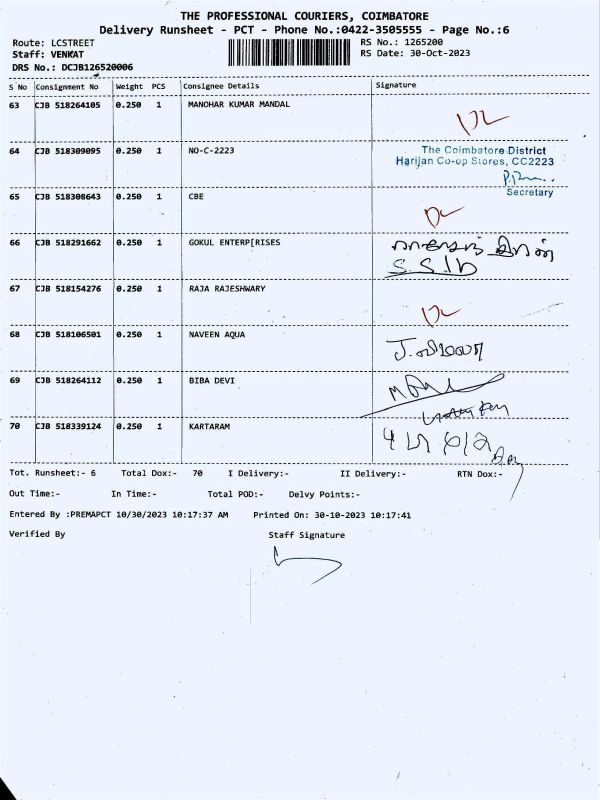 THE PROFESSIONAL COURIERS, COIMBATORE
Delivery Runsheet - PCT - Phone No.:0422-3505555 - Page No.:6
Route: LCSTREET
RS No.: 1265200
Staff: VENKAT
RS Date: 30-Oct-2023
DRS No.: DCJB126520006
S No Consignment No Weight PCS Consignee Details Signature
63 CJB 518264105 0.250 1 MANOHAR KUMAR MANDAL
64 CJB 518309095 0.250 1 NO-C-2223
The Coimbatore District
Harijan Co-op Stores, CC2223
Secretary
65 CJB 518308643 0.250 1 CBE
66 CJB 518291662 0.250 1 GOKUL ENTERP[RISES
67 CJB 518154276 0.250 1 RAJA RAJESHWARY
68 CJB 518106501 0.250 1 NAVEEN AQUA
69 CJB 518264112 0.250 1 BIBA DEVI
70 CJB 518339124 0.250 1 KARTARAM
Tot. Runsheet:- 6 Total Dox:- 70 I Delivery:- II Delivery:- RTN Dox:-
Out Time:- In Time:- Total POD:- Delvy Points:-
Entered By :PREMAPCT 10/30/2023 10:17:37 AM Printed On: 30-10-2023 10:17:41
Verified By Staff Signature